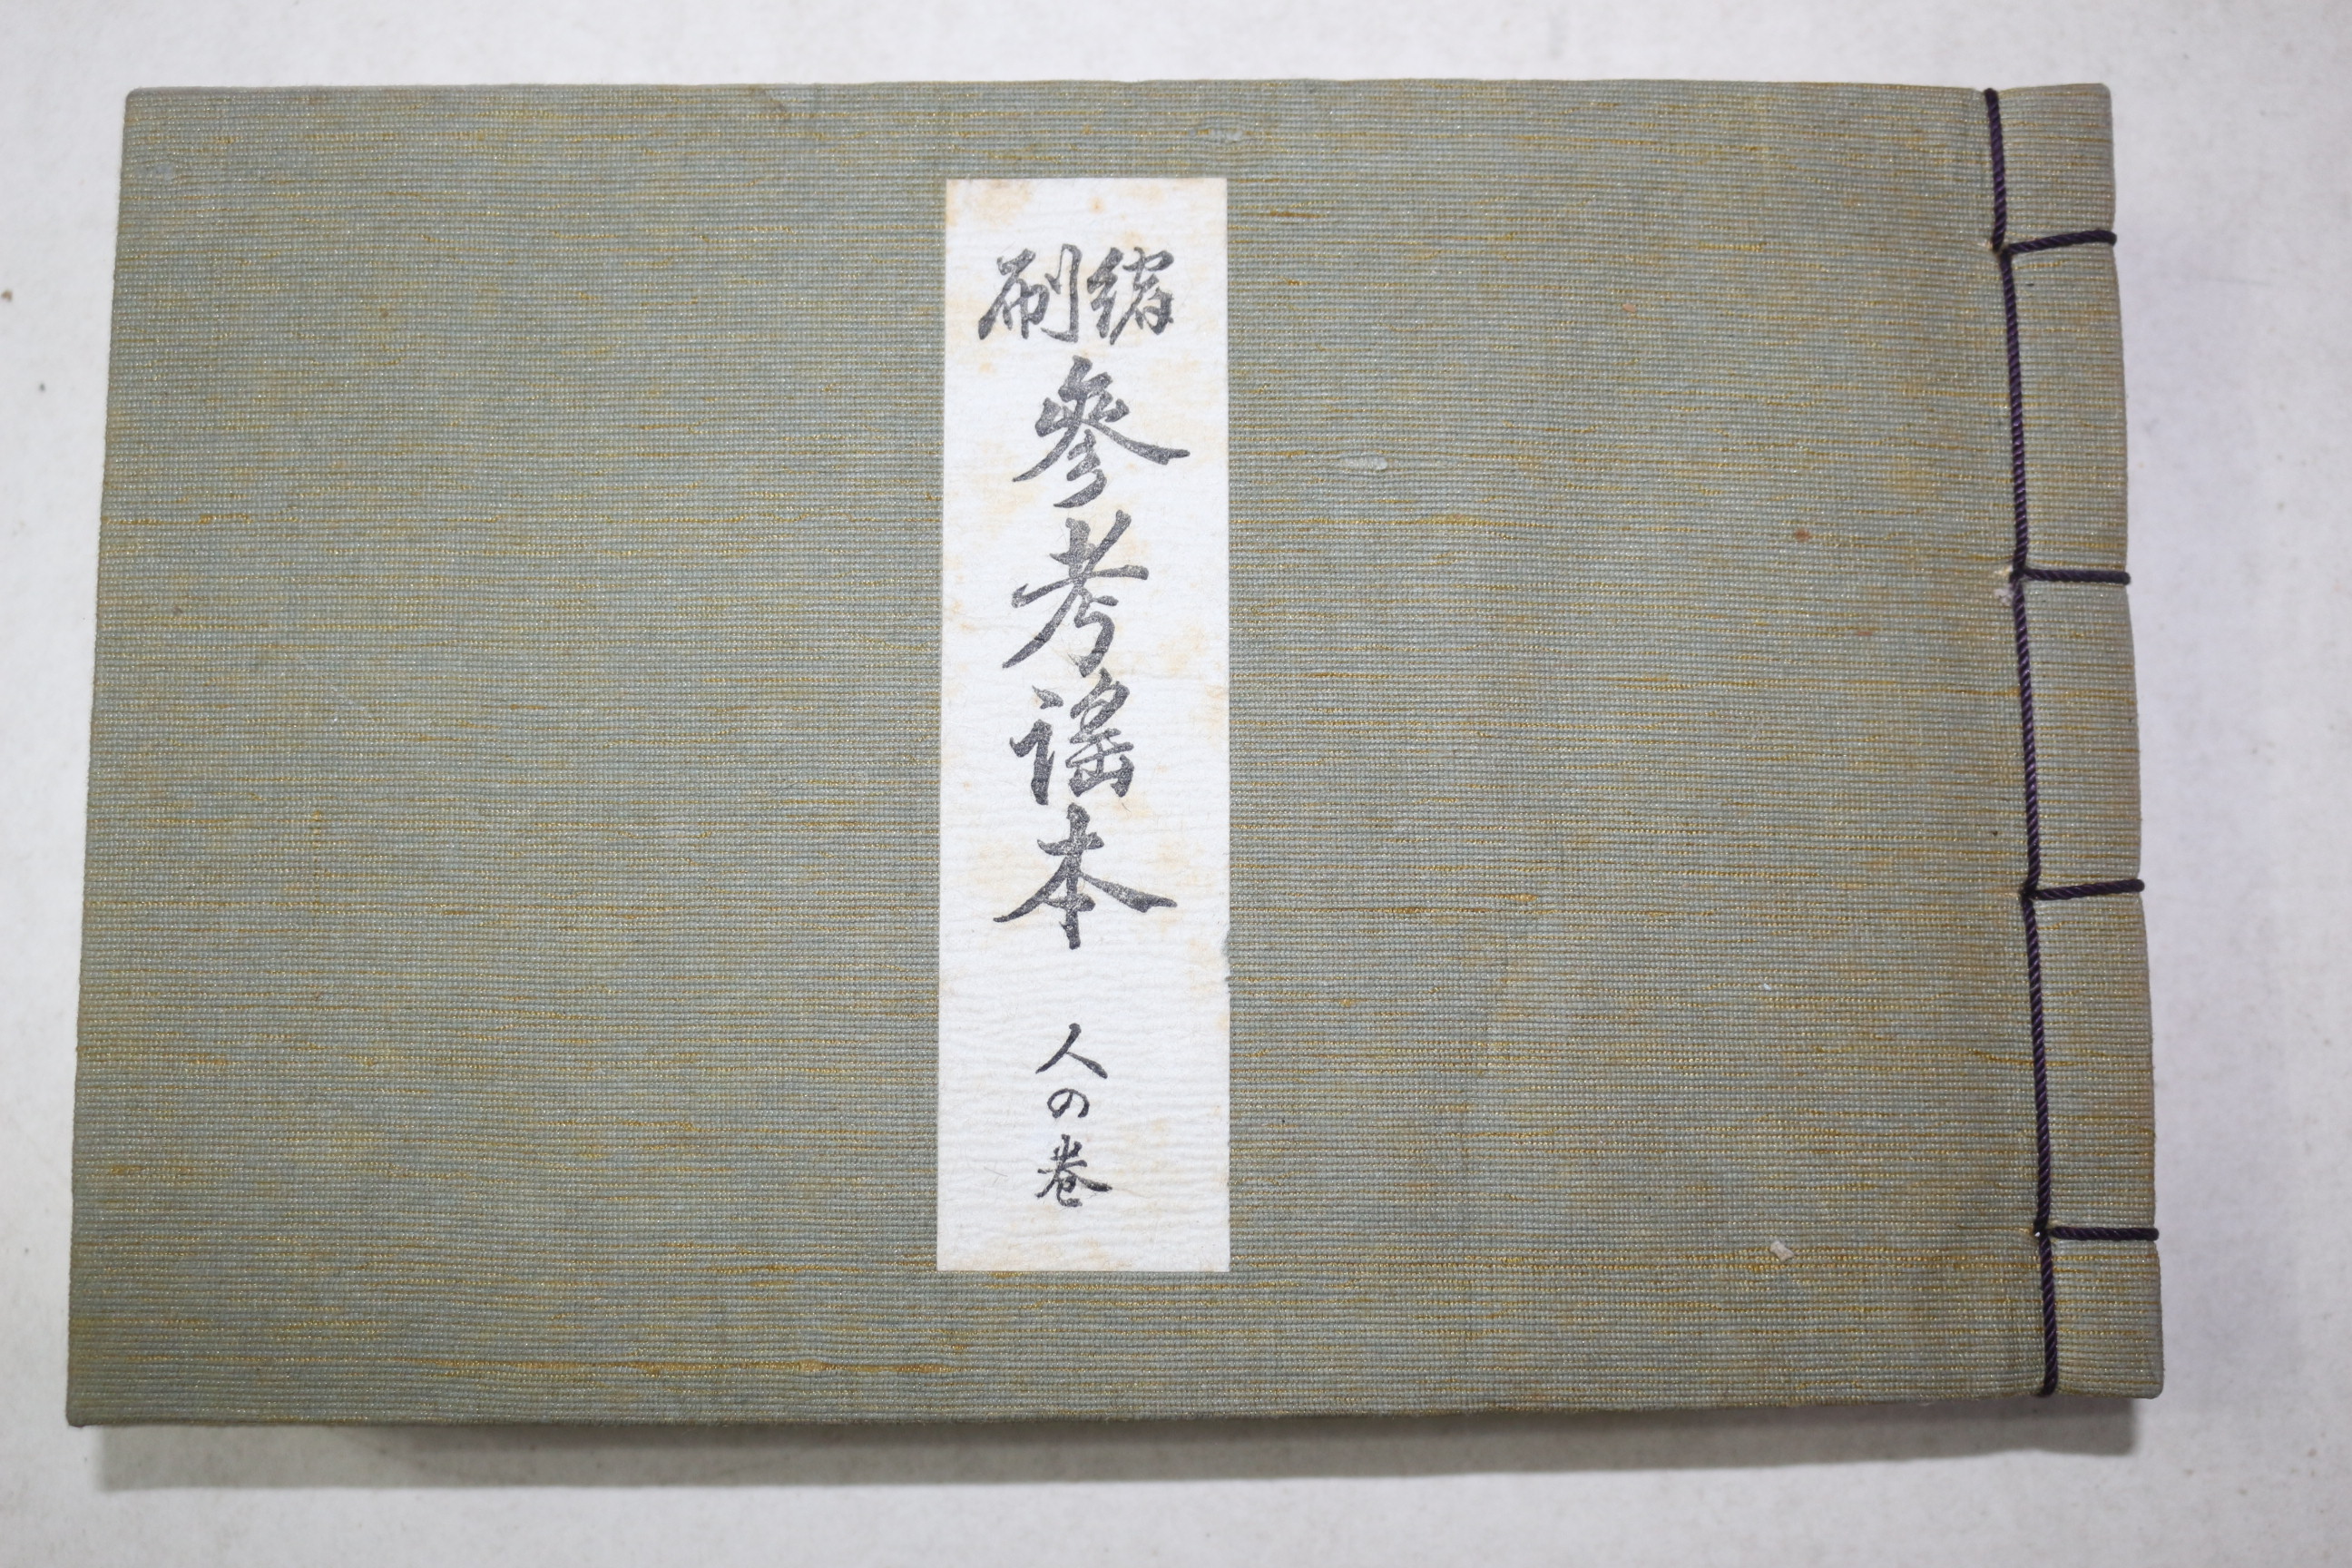 縮刷
參考謡本
人の巻